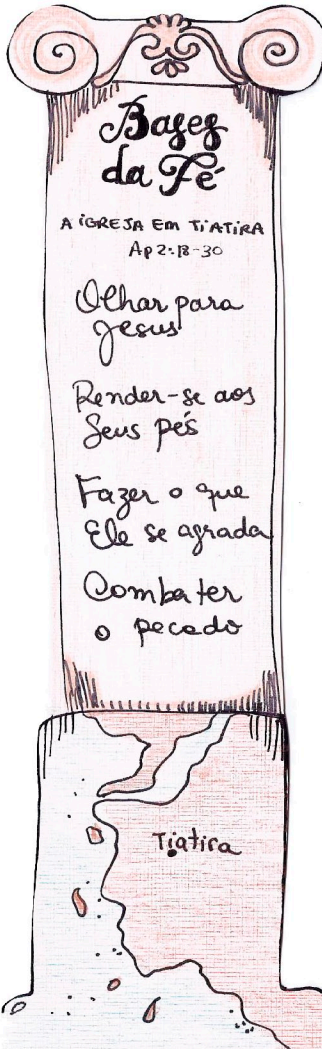 Bases
da Fé
A IGREJA EM TIATIRA
Ap 2:18-30
Olhar para
Jesus
Render-se aos
Seus pés
Fazer o que
Ele se agrada
Combater
o pecado
Tiatira